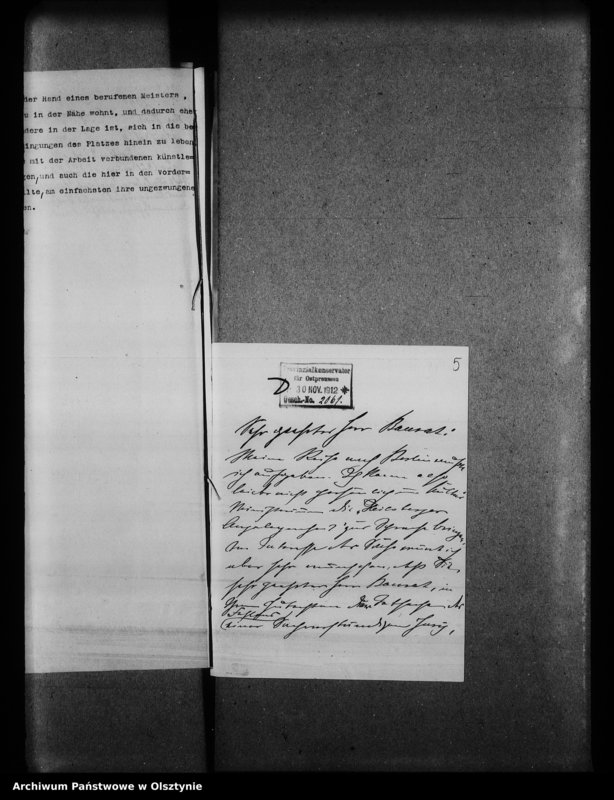 der Hand eines berufenen Meisters,
in der Nähe wohnt, und dadurch ehe
dere in der Lage ist, sich in die be
ingungen des Platzes hinein zu leben
mit der Arbeit verbundenen künstle=
gen, und auch die hier in den Vorder=
lte, am einfachsten ihre ungezwungene
en.
5
Provinzialkonservator
für Ostpreussen
30 NOV. 1912
Gesch.-No. 2061.
Sehr geehrter Herr Baurat!
Meine Reise nach Berlin
ich aufgeben. Ich kann also
leider nicht Kultus
Ministerium die Heilsberger
Angelegenheit zur Sprache bringen.
Im Interesse der Sache
aber sehr, daß Sie,
sehr geehrter Herr Baurat, in
Ihrem Gutachten die Tatsache des
Fehlens
einer Sachverständigen Jury,
Archiwum Państwowe w Olsztynie